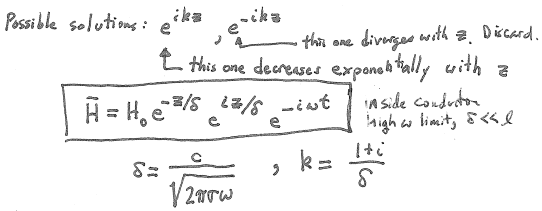 Possible solutions: e^{ikz}, e^{-ikz}
this one diverges with z. Discard.
this one decreases exponentially with z
H̄ = H₀ e^{-z/δ} e^{iz/δ} e^{-iωt}
inside conductor
high ω limit, δ<<l
δ = c/√(2πσω) , k = (1+i)/δ